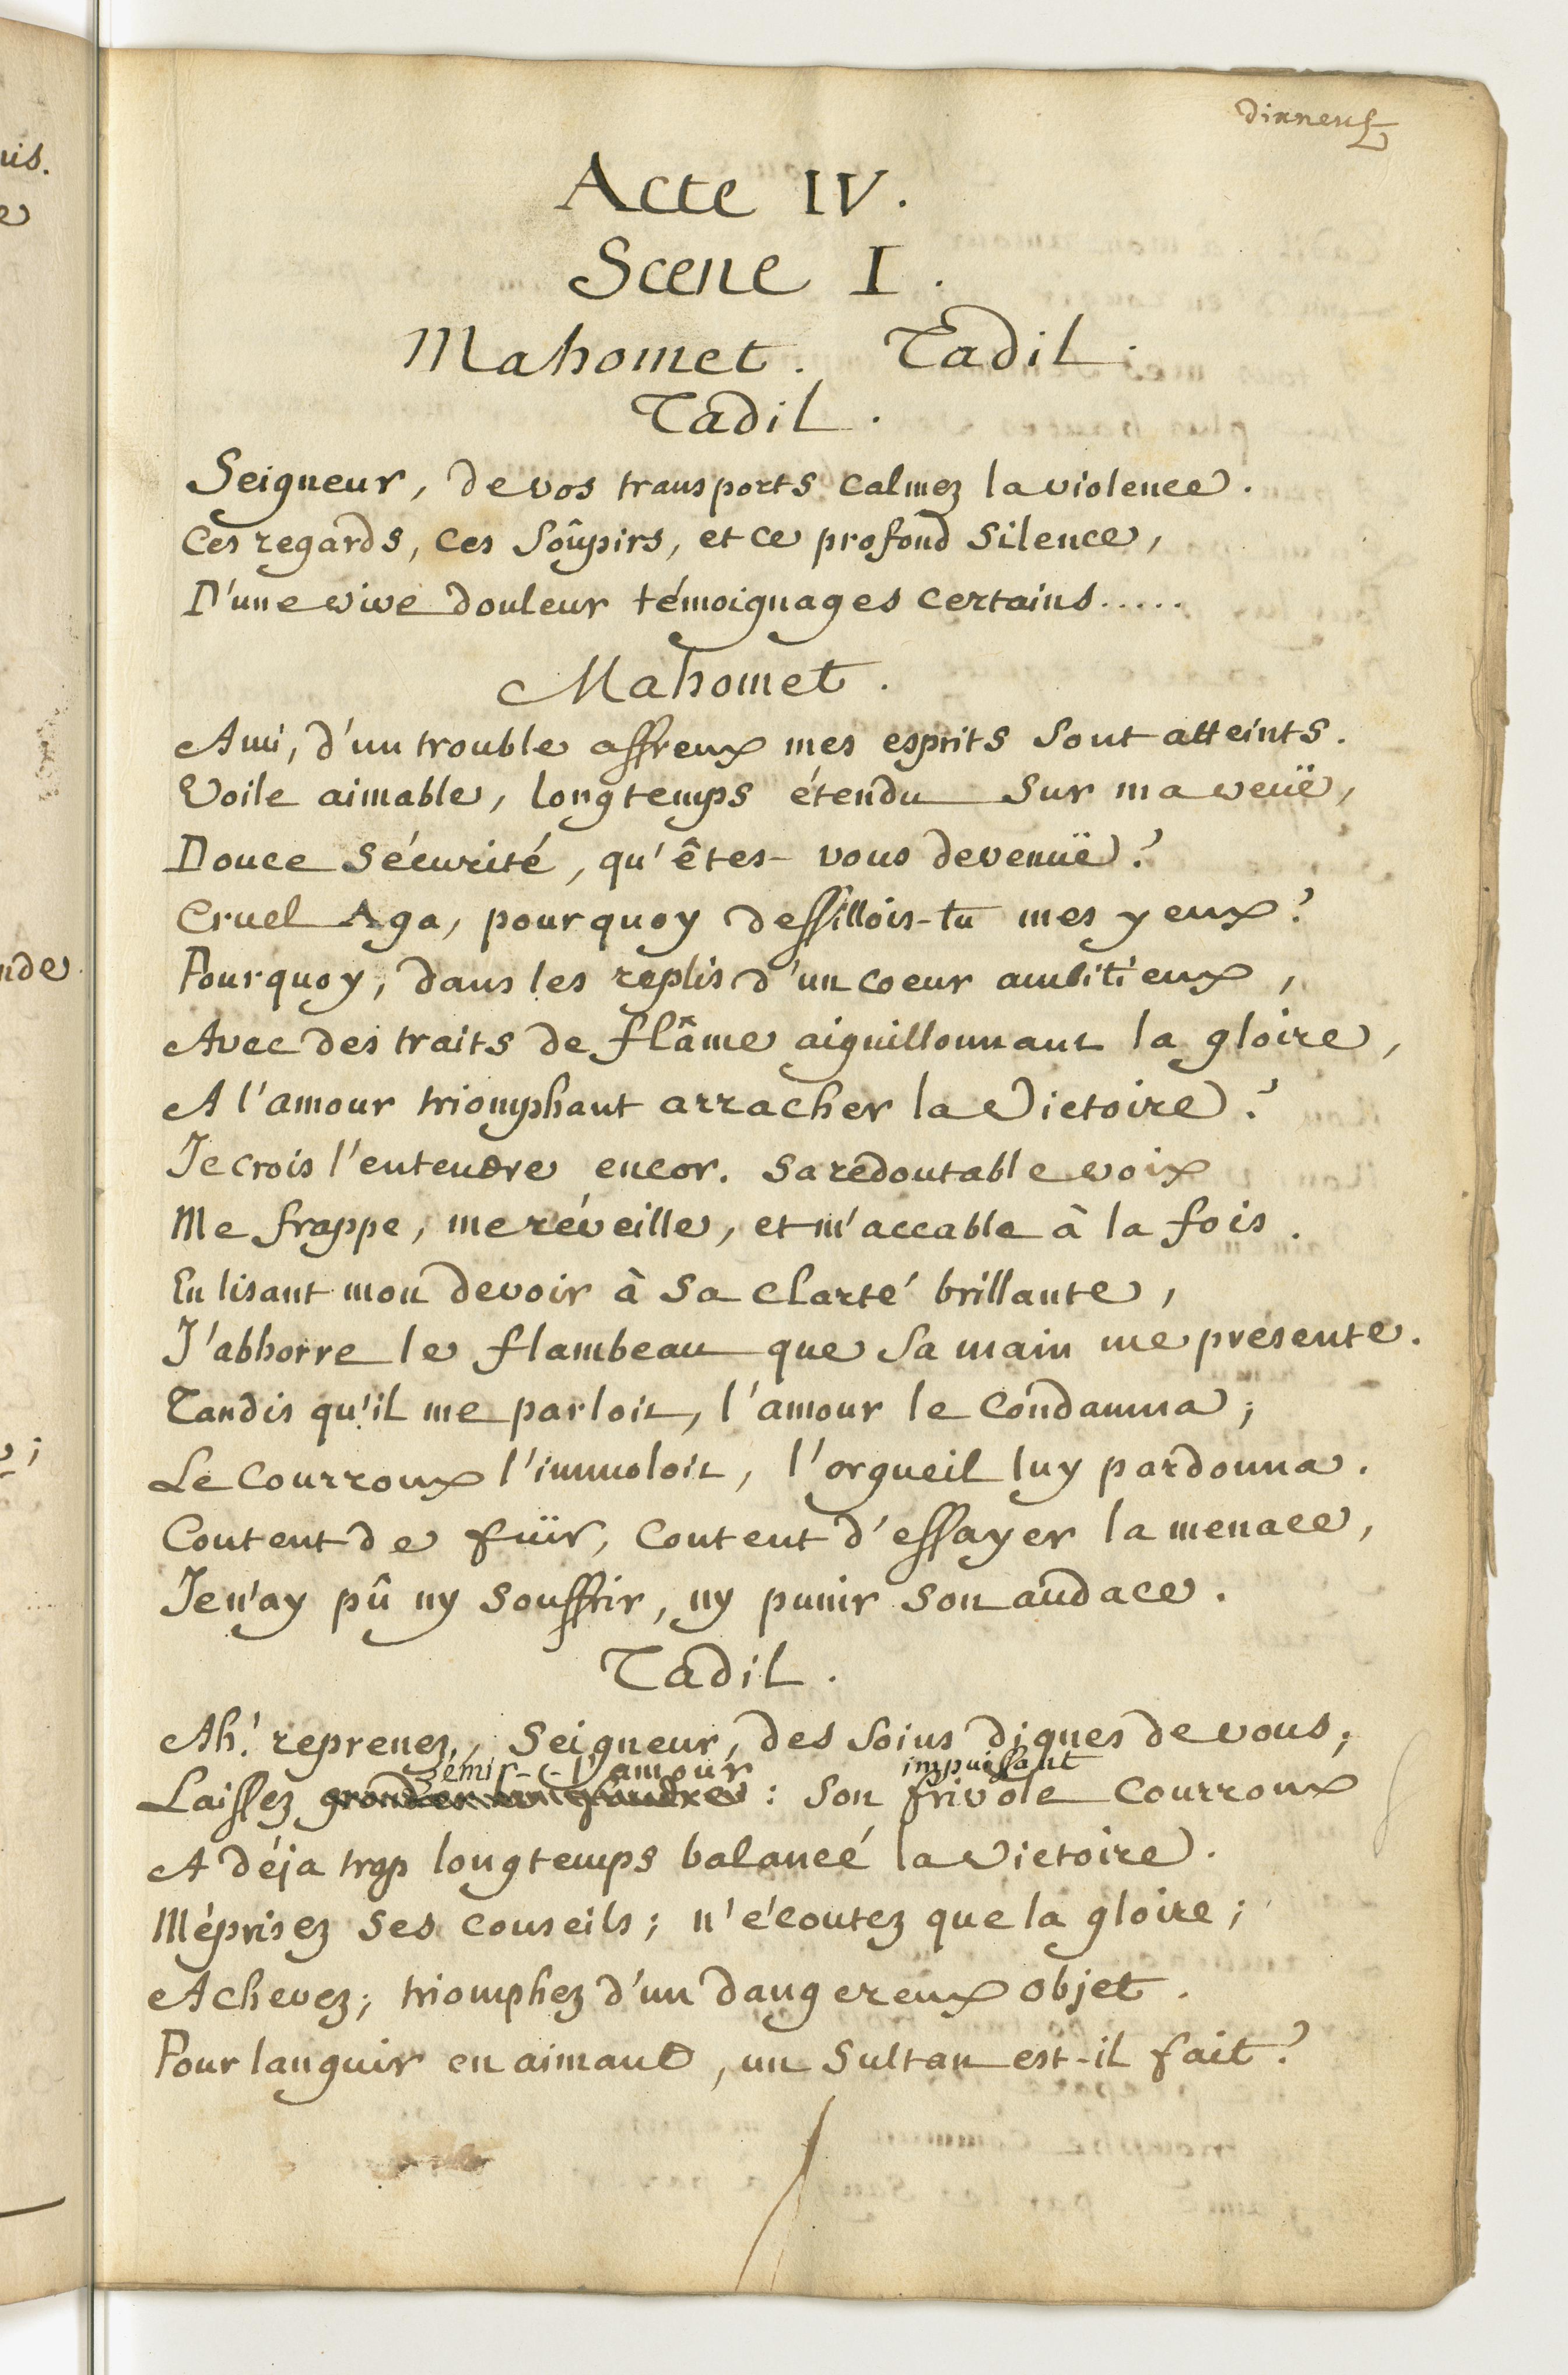 dixneuf
Acte IV.
Scene I.
Mahomet. Tadil.
Tadil.
Seigneur, de vos transports calmez la violence.
Ces regards, ces soûpirs, et ce profond silence,
D'une vive douleur témoignages certains.....
Mahomet.
Ami, d'un trouble affreux mes esprits sont atteints.
Voile aimable, longtemps étendu sur ma veuë,
Douce sécurité, qu'êtes-vous devenuë?
Cruel Aga, pourquoy dessillois-tu mes yeux?
Pourquoy, dans les replis d'un coeur ambitieux,
Avec des traits de flâme aiguillonnant la gloire,
A l'amour triomphant arracher la Victoire?
Je crois l'entendre encor. Sa redoutable voix
Me frappe, me réveille, et m'accable à la fois.
En lisant mon devoir à sa clarté brillante,
J'abhorre le flambeau que sa main me présente.
Tandis qu'il me parloit, l'amour le condamna;
Le courroux l'immoloit, l'orgueil luy pardonna.
Content de fuïr, content d'essayer la menace,
Je n'ay pû ny souffrir, ny punir son audace.
Tadil.
Ah! reprenez, Seigneur, des soins dignes de vous;
gémir l'amour impuissant
Laissez gronder la foudre: son frivole courroux
A déja trop longtemps balancé la Victoire.
Méprisez ses conseils; n'écoutez que la gloire;
Achevez; triomphez d'un dangereux objet.
Pour languir en aimant, un Sultan est-il fait?